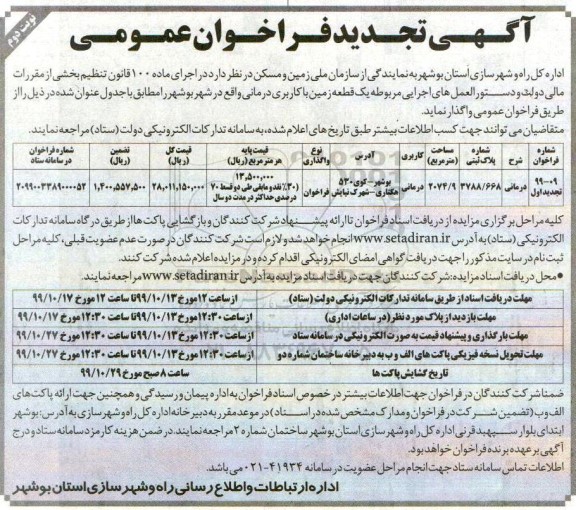 نوبت دوم
آگهی تجدید فراخوان عمومی
اداره کل راه و شهرسازی استان بوشهر به نمایندگی از سازمان ملی زمین و مسکن در نظر دارد در اجرای ماده ۱۰۰ قانون تنظیم بخشی از مقررات
مالی دولت و دستورالعمل های اجرایی مربوطه یک قطعه زمین با کاربری درمانی واقع در شهر بوشهر را مطابق با جدول عنوان شده در ذیل را از
طریق فراخوان عمومی واگذار نماید.
متقاضیان می توانند جهت کسب اطلاعات بیشتر طبق تاریخ های اعلام شده، به سامانه تدارکات الکترونیکی دولت (ستاد) مراجعه نمایند.
شماره فراخوان | شرح | شماره پلاک ثبتی | مساحت (مترمربع) | کاربری | آدرس | نوع واگذاری | قیمت پایه هر مترمربع (ریال) | قیمت کل (ریال) | تضمین (ریال) | شماره فراخوان در سامانه ستاد
۹۹-۰۰۹ تجدید اول | درمانی | ۳۷۸۸/۶۶۸ | ۲۰۷۴/۹ | درمانی | بوشهر - کوی ۵۳۰ هکتاری - شهرک نیایش | فراخوان | ۱۳,۵۰۰,۰۰۰ ۳۰٪ نقد و مابقی طی دو قسط ۷۰ درصدی حداکثر در مدت دو سال | ۲۸,۰۱۱,۱۵۰,۰۰۰ | ۱,۴۰۰,۵۵۷,۵۰۰ | ۲۰۹۹۰۰۳۳۸۹۰۰۰۰۵۲
کلیه مراحل برگزاری مزایده از دریافت اسناد فراخوان تا ارائه پیشنهاد شرکت کنندگان و بازگشایی پاکت ها از طریق درگاه سامانه تدارکات
الکترونیکی (ستاد) به آدرس www.setadiran.ir انجام خواهد شد و لازم است شرکت کنندگان در صورت عدم عضویت قبلی، کلیه مراحل
ثبت نام در سایت مذکور را جهت دریافت گواهی امضای الکترونیکی اقدام کرده و در مزایده اعلام شده شرکت کنند.
• محل دریافت اسناد مزایده: شرکت کنندگان جهت دریافت اسناد مزایده به آدرس www.setadiran.ir مراجعه نمایند.
مهلت دریافت اسناد از طریق سامانه تدارکات الکترونیکی دولت (ستاد) | از ساعت ۱۲ مورخ ۹۹/۱۰/۱۳ تا ساعت ۱۲ مورخ ۹۹/۱۰/۱۷
مهلت بازدید از پلاک مورد نظر (در ساعات اداری) | از ساعت ۱۲:۳۰ مورخ ۹۹/۱۰/۱۳ تا ساعت ۱۲:۳۰ مورخ ۹۹/۱۰/۱۷
مهلت بارگذاری و پیشنهاد قیمت به صورت الکترونیکی در سامانه ستاد | از ساعت ۱۲:۳۰ مورخ ۹۹/۱۰/۱۳ تا ساعت ۱۲:۳۰ مورخ ۹۹/۱۰/۲۷
مهلت تحویل نسخه فیزیکی پاکت های الف و ب به دبیرخانه ساختمان شماره دو | از ساعت ۱۲:۳۰ مورخ ۹۹/۱۰/۱۳ تا ساعت ۱۲:۳۰ مورخ ۹۹/۱۰/۲۷
تاریخ گشایش پاکت ها | ساعت ۸ صبح مورخ ۹۹/۱۰/۲۹
ضمنا شرکت کنندگان در فراخوان جهت اطلاعات بیشتر در خصوص اسناد فراخوان به اداره پیمان و رسیدگی و همچنین جهت ارائه پاکت های
الف و ب (تضمین شرکت در فراخوان و مدارک مشخص شده در اسناد) در موعد مقرر به دبیرخانه اداره کل راه و شهرسازی به آدرس: بوشهر
ابتدای بلوار سپهبد قرنی اداره کل راه و شهرسازی استان بوشهر ساختمان شماره ۲ مراجعه نمایند. در ضمن هزینه کارمزد سامانه ستاد و درج
آگهی بر عهده برنده فراخوان خواهد بود.
اطلاعات تماس سامانه ستاد جهت انجام مراحل عضویت در سامانه ۴۱۹۳۴-۰۲۱ می باشد.
اداره ارتباطات و اطلاع رسانی راه و شهرسازی استان بوشهر